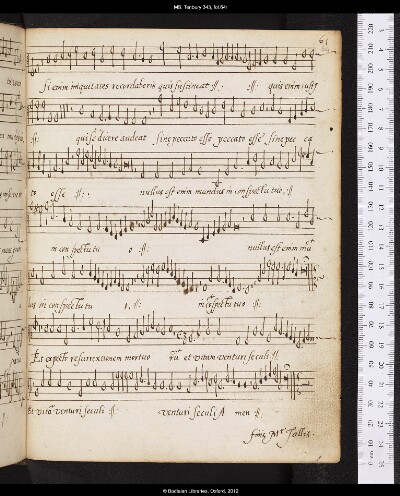 MS. Tenbury 343, fol.64r
Si enim iniquitates recordaberis quis sustineat :||: :||: quis enim iustꝰ
:||: quise dicere audeat sine peccato esse peccato esse sine pec ca
to esse :||: nullus est enim mundus in conspectu tuo, :||:
in conspectu tu o :||: nullus est enim mū
in conspectu tu o, :||: in cōspectu tuo :||:
Et expecto resurrexionem mortuo rū et vitam venturi seculi :||:
Et vitā venturi seculi :||: venturi seculi A men :||:
finis Mr Tallis.
© Bodleian Libraries, Oxford, 2012